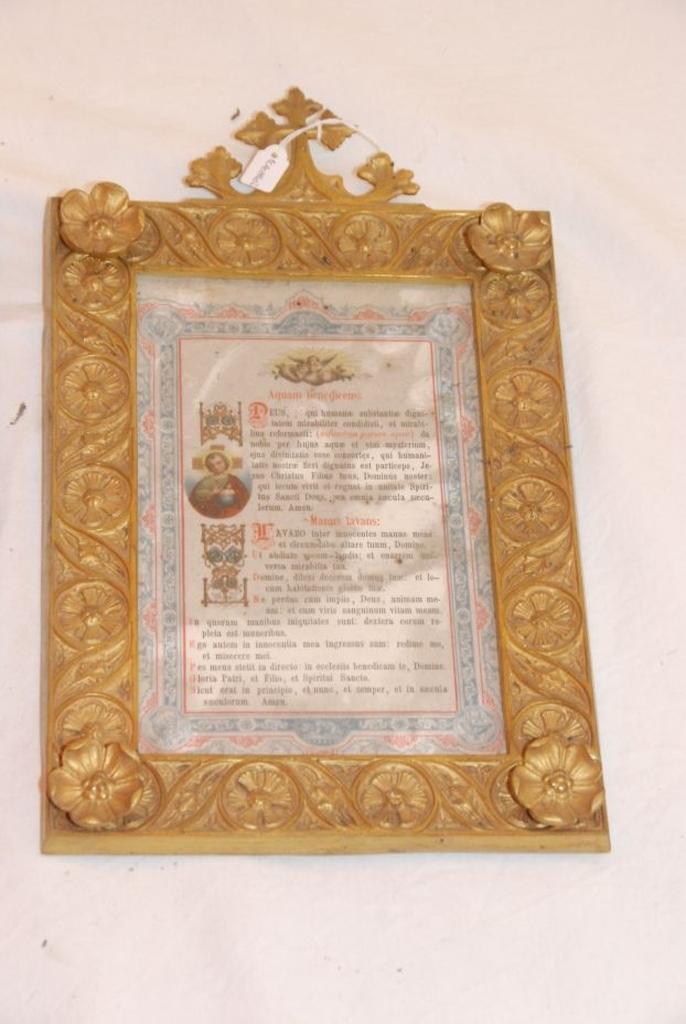 Aquam benedicens:
DEUS, qui humanæ substantiæ digni-
tatem mirabiliter condidisti, et mirabi-
lius reformasti: da
nobis per hujus aquæ et vini mysterium,
ejus divinitatis esse consortes, qui humani-
tatis nostræ fieri dignatus est particeps, Je-
sus Christus Filius tuus, Dominus noster:
qui tecum vivit et regnat in unitate Spiri-
tus Sancti Deus, per omnia sæcula sæcu-
lorum. Amen.
Manus lavans:
LAVABO inter innocentes manus meas
et circumdabo altare tuum, Domine.
Ut audiam vocem laudis: et enarrem uni-
versa mirabilia tua.
Domine, dilexi decorem domus tuæ: et lo-
cum habitationis gloriæ tuæ.
Ne perdas cum impiis, Deus, animam me-
am: et cum viris sanguinum vitam meam.
In quorum manibus iniquitates sunt: dextera eorum re-
pleta est muneribus.
Ego autem in innocentia mea ingressus sum: redime me,
et miserere mei.
Pes meus stetit in directo: in ecclesiis benedicam te, Domine.
Gloria Patri, et Filio, et Spiritui Sancto.
Sicut erat in principio, et nunc, et semper, et in sæcula
sæculorum. Amen.